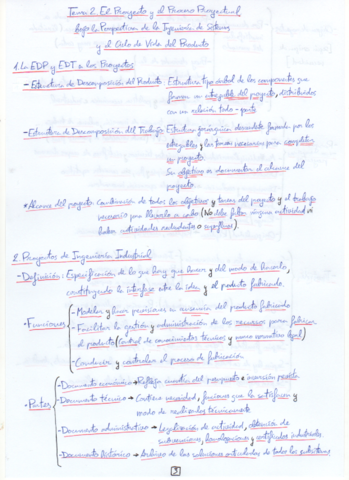 Tema 2. El Proyecto y el Proceso Proyectual
bajo la Perspectiva de la Ingeniería de Sistemas
y el Ciclo de Vida del Producto
1. La EDP y EDT en los Proyectos
- Estructura de Descomposición del Producto Estructura tipo árbol de los componentes que
forman un entregable del proyecto, distribuidos
con una relación todo-parte
- Estructura de Descomposición del Trabajo Estructura jerárquica descendente formada por los
entregables y las tareas necesarias para completar
un proyecto
Su objetivo es documentar el alcance del
proyecto
* Alcance del proyecto Combinación de todos los objetivos y tareas del proyecto y el trabajo
necesario para llevarlo a cabo (No debe faltar ninguna actividad ni
haber actividades redundantes o superfluas).
2. Proyectos de Ingeniería Industrial
- Definición: Especificación de lo que hay que hacer y del modo de hacerlo,
constituyendo la interfase entre la idea y el producto fabricado
- Funciones
- Modelar y hacer previsiones en ausencia del producto fabricado
- Facilitar la gestión y administración de los recursos para fabricar
el producto (Control de conocimientos técnicos y marco normativo legal)
- Conducir y controlar el proceso de fabricación
- Partes
- Documento económico → Refleja cuantía del presupuesto e inversión
- Documento técnico → Contiene necesidad, funciones que la satisfacen y
modo de realizarlas técnicamente
- Documento administrativo → Legalización de actividad, obtención de
subvenciones, homologaciones y certificados industriales
- Documento histórico → Archivo de las soluciones articuladas de todos los
3